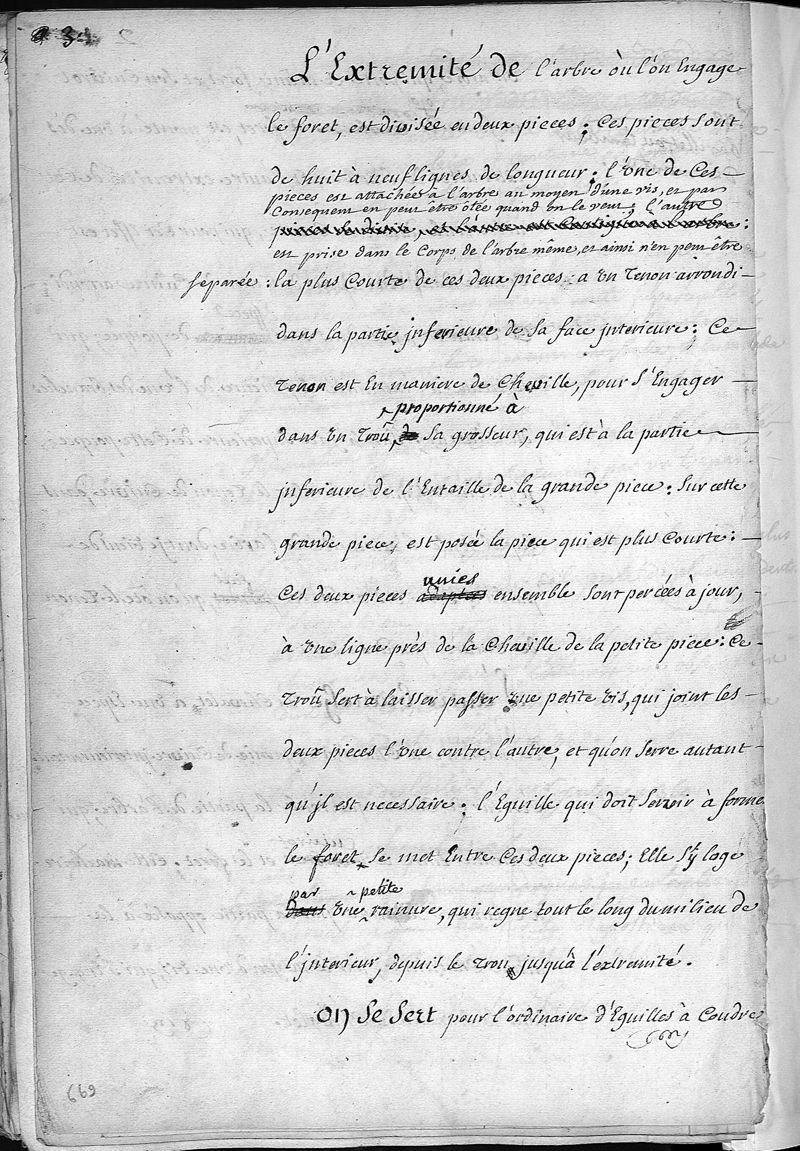 34
L'Extremité de l'arbre où l'on Engage
le foret, est divisée en deux pieces; Ces pieces sont
de huit à neuf lignes de longueur: l'une de Ces
pieces est attachée à l'arbre au moyen d'une vis, et par
Consequent en peut être ôtée quand on le veut; l'autre
est prise dans le Corps de l'arbre même, et ainsi n'en peut être
séparée: la plus Courte de ces deux pieces a un Tenon arrondi
dans la partie jnferieure de sa face jnterieure; Ce
Tenon est En maniere de Cheville, pour s'Engager
proportionné à
dans un Troû, de sa grosseur, qui est à la partie
jnferieure de l'Entaille de la grande piece: Sur cette
grande piece, est posée la piece qui est plus Courte:
unies
Ces deux pieces adaptées ensemble sont percées à jour,
à une ligne près de la Cheville de la petite piece: Ce
Troû sert à laisser passer une petite vis, qui joint les
deux pieces l'une contre l'autre, et qu'on serre autant
qu'jl est necessaire; l'Eguille qui doit servir à forme
le foret, se met Entre Ces deux pieces; Elle s'y loge
par petite
dans une rainure, qui regne tout le long du milieu de
l'jnterieur, depuis le Trou jusqu'à l'éxtremité.
On se sert pour l'ordinaire d'Eguilles à Coudre
669